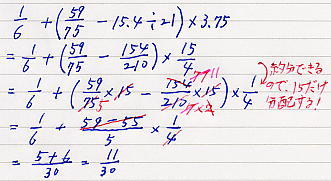 1/6 + (59/75 - 15.4 ÷ 21) × 3.75
= 1/6 + (59/75 - 154/210) × 15/4
= 1/6 + (59/75 × 15 - 154/210 × 15) × 1/4
約分できる
ので、15だけ
分配する!
= 1/6 + 59-55/5 × 1/4
= 5+6/30 = 11/30